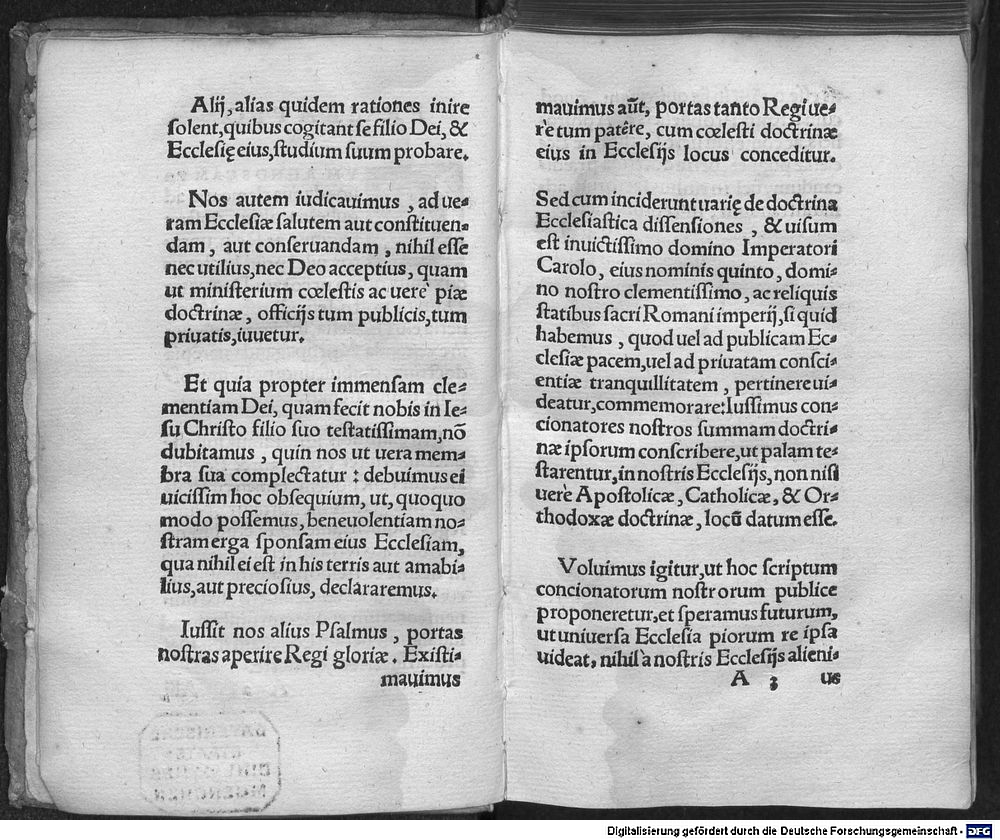 Alij, alias quidem rationes inire
solent, quibus cogitant se filio Dei, &
Ecclesię eius, studium suum probare.
Nos autem iudicauimus, ad ue⸗
ram Ecclesiæ salutem aut constituen⸗
dam, aut conseruandam, nihil esse
nec utilius, nec Deo acceptius, quam
ut ministerium cœlestis ac uerè piæ
doctrinæ, officijs tum publicis, tum
priuatis, iuuetur.
Et quia propter immensam cle⸗
mentiam Dei, quam fecit nobis in Ie⸗
su Christo filio suo testatissimam, nō
dubitamus, quin nos ut uera mem⸗
bra sua complectatur: debuimus ei
uicissim hoc obsequium, ut, quoquo
modo possemus, beneuolentiam no⸗
stram erga sponsam eius Ecclesiam,
qua nihil ei est in his terris aut amabi⸗
lius, aut preciosius, declararemus.
Iussit nos alius Psalmus, portas
nostras aperire Regi gloriæ. Existi⸗
mauimus
mauimus aũt, portas tanto Regi ue⸗
rè tum patêre, cum cœlesti doctrinæ
eius in Ecclesijs locus conceditur.
Sed cum inciderunt uarię de doctrina
Ecclesiastica dissensiones, & uisum
est inuictissimo domino Imperatori
Carolo, eius nominis quinto, domi⸗
no nostro clementissimo, ac reliquis
statibus sacri Romani imperij, si quid
habemus, quod uel ad publicam Ec⸗
clesiæ pacem, uel ad priuatam consci⸗
entiæ tranquillitatem, pertinere ui⸗
deatur, commemorare: Iussimus con⸗
cionatores nostros summam doctri⸗
næ ipsorum conscribere, ut palam te⸗
starentur, in nostris Ecclesijs, non nisi
uerè Apostolicæ, Catholicæ, & Or⸗
thodoxæ doctrinæ, locũ datum esse.
Voluimus igitur, ut hoc scriptum
concionatorum nostrorum publice
proponeretur, et speramus futurum,
ut uniuersa Ecclesia piorum re ipsa
uideat, nihil à nostris Ecclesijs alieni⸗
A 3 us
Digitalisierung gefördert durch die Deutsche Forschungsgemeinschaft - DFG